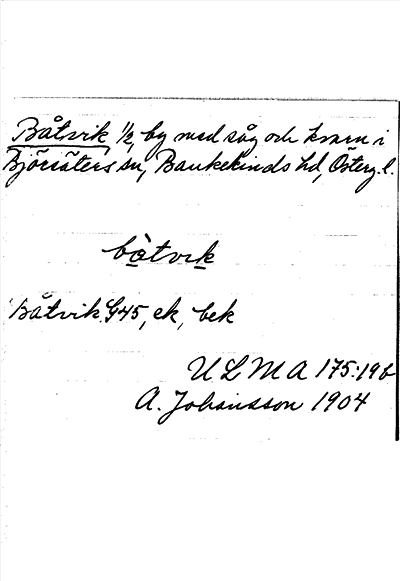 Båtvik 1/2, by med såg och kvarn i
Björsäters sn, Bankekinds hd, Österg. l.
bòtvik
Båtvik G45, ek, bek
ULMA 175:19b
A. Johansson 1904